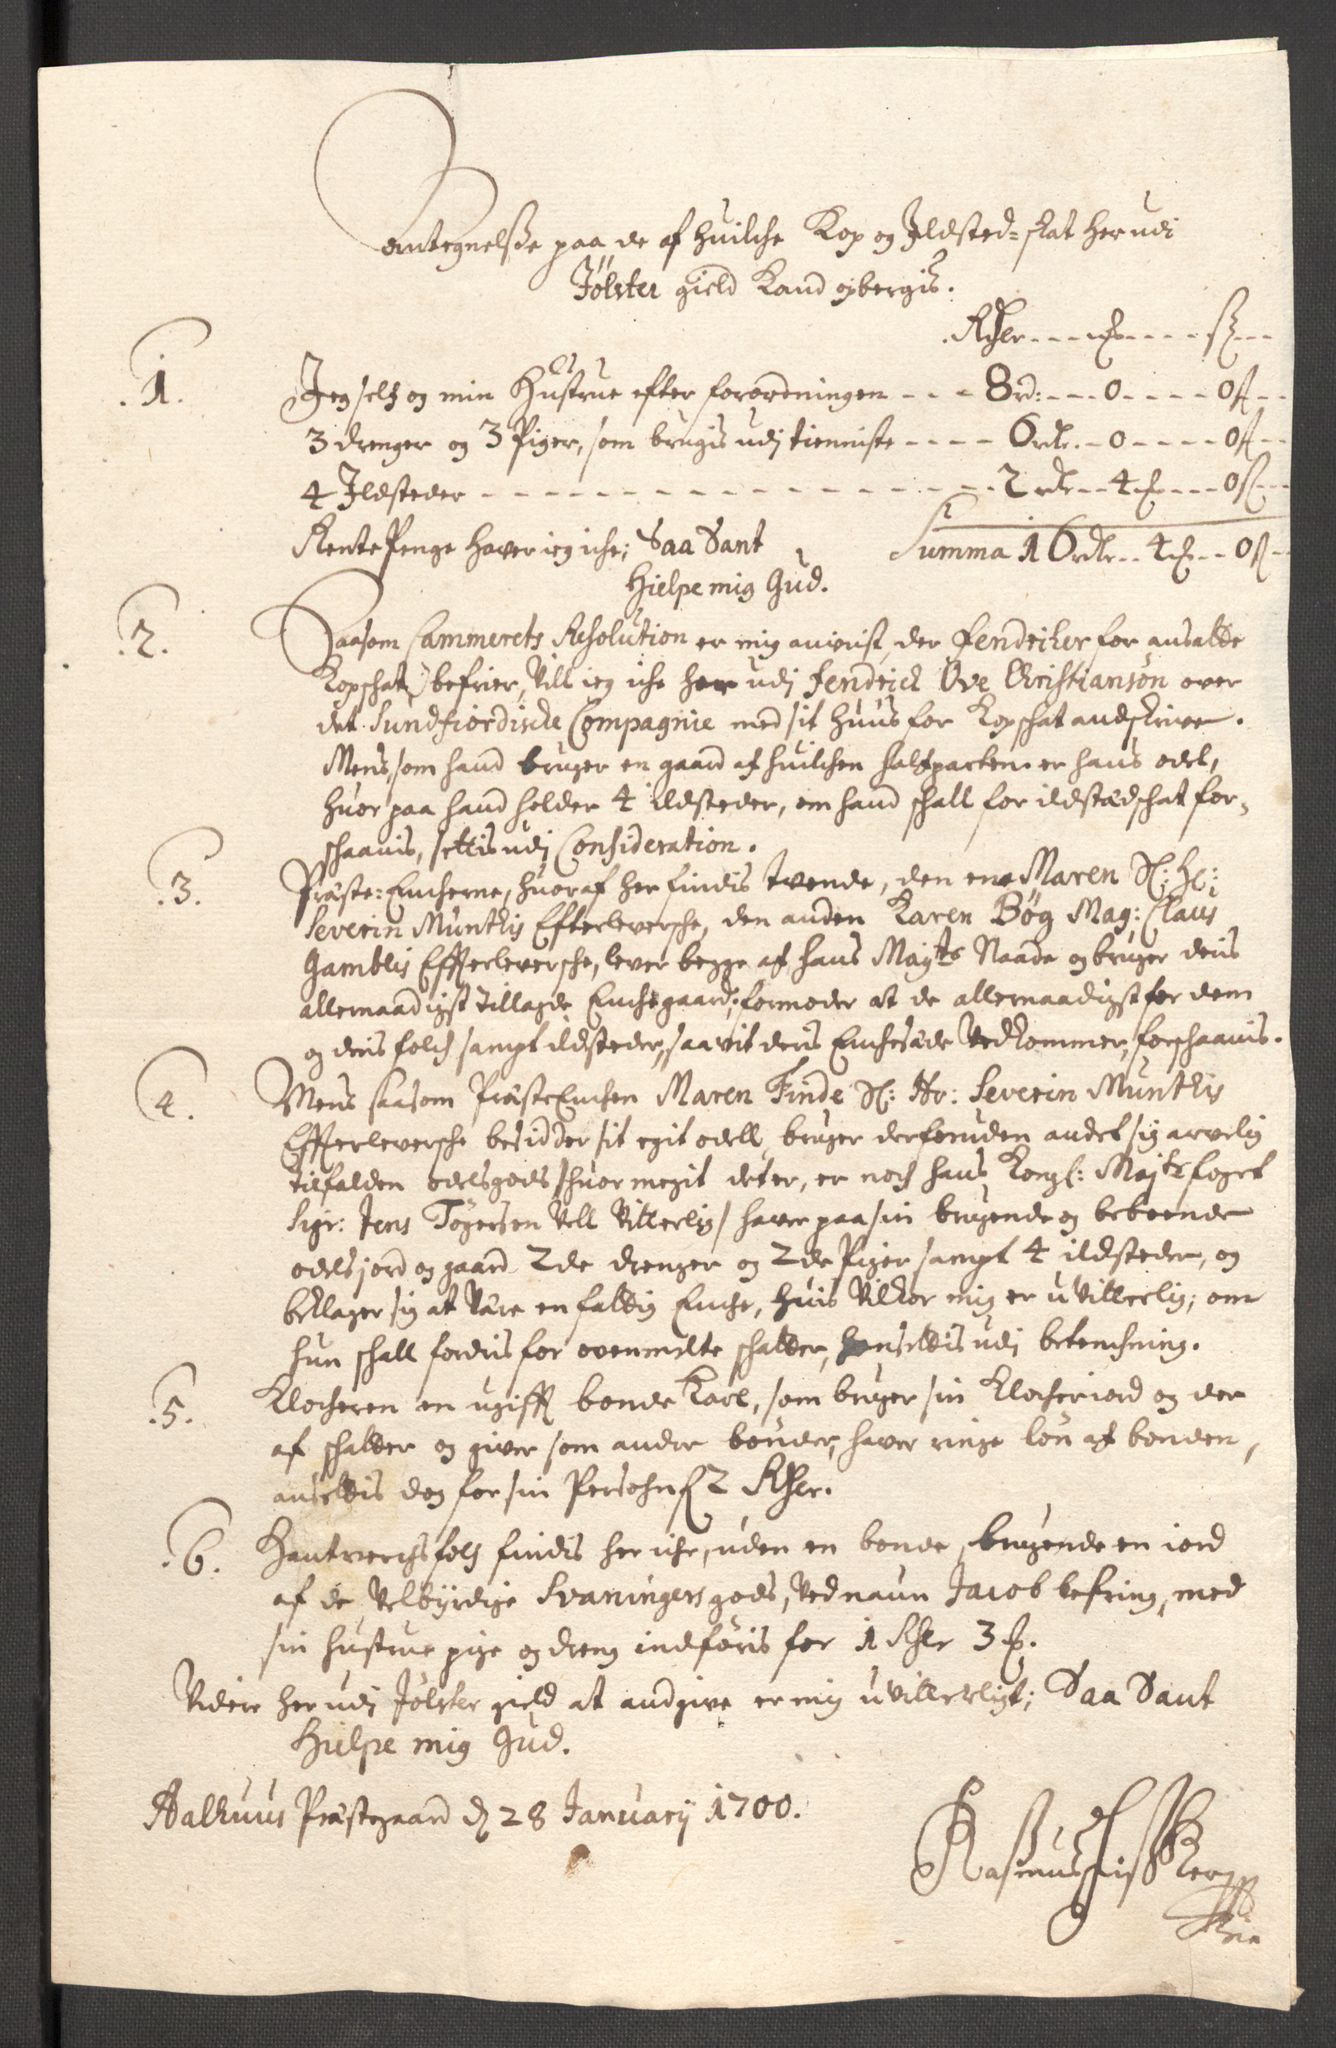 Antegnelsse paa de af huilche Kop og Ildsted-skat her udi
Jölster gield kand opbergis.
Rdlr --- ℳ ---- ß --
.1. Jeg self og min Hustrue efter forordningen --- 8 rd: --- 0 ---- 0 ß --
3 drenger og 3 Piger, som brugis udj tienniste ---- 6 rdr. -- 0 ---- 0 ß --
4 Ildsteder ---- 2 rdr -- 4 ℳ --- 0 ß --
Rente Penge haver ieg iche; Saa Sant Summa 16 rdr -- 4 ℳ -- 0 ß --
Hielpe mig Gud.
.2. Saasom Cammerets Resolution er mig anvist, der Fendricher for ansatte
Kopschat befrier, vill ieg iche her udj Fendrich Ove Christiansön over
det Sundfiordische Compagnie med sit huus for Kopschat andskriver.
Mens, som hand bruger en gaard af huilchen halfparten er hans odel,
huor paa hand holder 4 ildsteder, om hand schall for ildstædschat for-
schaanis, settis udj Consideration.
.3. Præste-Encherne, huoraf her findis tvende, den ene Maren Sl: Hr:
Severin Munthis Efterleversche, den anden Karen Bøg Mag: Claus
Gamblis Effterleversche, lever begge af hans Mayts Naade og bruger deris
allernaadigst tillagde Enchegaard, formoder at de allernaadigst for dem
og deris folch sampt ildsteder, saavit deris Enchesæde vedkommer, forschaanis.
4. Mens saasom Præste Enchen Maren Finde Sl: Hr: Severin Munthis
Effterleversche besidder sit egit odell, bruger der foruden andet sig arvelig
tilfalden odelsgods /huor megit det er, er noch hans Kongl: Mayts foget
Sigr: Jens Tøgersen vell vitterlig/ haver paa sin brugende og beboende
odels jord og gaard 2de drenger og 2de Piger sampt 4 ildsteder, og
beklager sig at være en fattig Enche, huis vilkor mig er uvitterlig; om
hun schall fordris for ovenmelte schatter, henstillis udj betenchning.
.5. Klocheren en ugifft bonde Karl, som bruger sin Klocheriord og der
af schatter og giver som andre bønder, haver ringe løn af bonden,
ansettis dog for sin Persohn 2 Rdlr.
.6. Hantverchsfolch findis her iche, uden en bonde, brugende en iord
af de velbyrdige Svaningers gods, ved naun Jacob befring, med
sin hustrue pige og dreng indføris for 1 Rdlr 3 ℳ.
Videre her udj Jölster gield at andgive er mig uvitterligt; Saa Sant
Hielpe mig Gud.
Aalhuus Præstegaard d 28 January 1700.
Rasmus